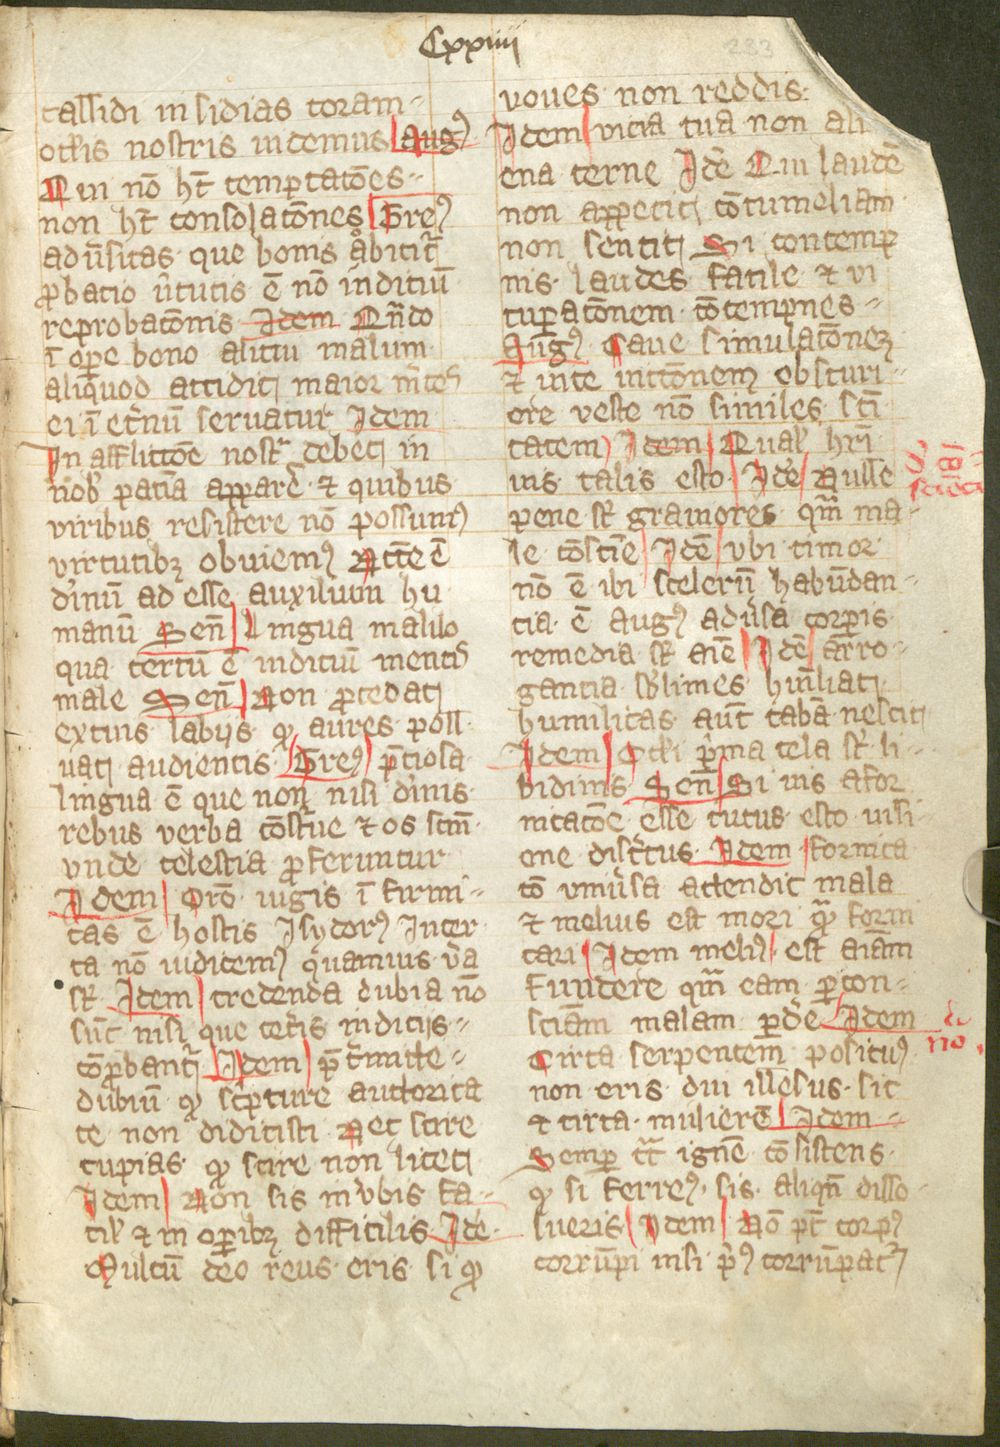 Cxxiiii
233
callidi insidias coram
oclis nostris indemus Aug9
Qui nō hn̄t temptatōes
non hn̄t consolatōnes Greg9
adūsitas que bonis
p̱batio ūtutis ē nō indiciū
reprobatōnis Idem Qn̄do
ī oꝑe bono alicui malum
aliquod accidit maior m̄ces
ei ī etn̄ū seruatur Idem
In afflictōe nost debet in
nob paciā apparē ⁊ quibus
viribus resistere nō possum9
virtutibꝫ obuiem9
diuinū adesse auxilium hu
manū Sen̄ Lingua maliloqua
qua certū ē indiciū mentis
male Sen̄ Non ꝓcedat
ex tuis labijs qd aures poll
uat audientis Greg9 p̄ciosa
lingua ē que non nisi diuinis
rebus verba cōstrue ⁊ os scm̄
vnde celestia ꝓferuntur
Idem Oro iugis ī firmi
tas ē hostis Isydor9 Incer
ta nō iudicem9 quamuis v̄a
sūt Idem credenda dubia nō
sunt nisi que cetis indiciis
cōꝓbant Idem p̄t̄mitte
dubiū qd scpture auctorita
te non didicisti Nec scire
cupias qd scire non licet
Idem Non sis in v̄bis fa
cil ⁊ in oꝑibꝫ difficilis Idē
Multū deo reus eris si qd
voues non reddis
Idem vicia tua non ali
ena cerne Idē Qui laudē
non appetit cōtumeliam
non sentit Si contemp
nis laudes facile ⁊ vi
tuꝑatōnem cōtempnes
Aug9 Caue simulatōneꝫ
⁊ inte inctōnem obscuri
ore veste nō similes scī
tatem Idem Qual hri
uis talis esto Idē Nulle
pene sūt grauiores qm̄ ma
le cōscīe Idē vbi timor
nō ē ibi scelerū habūdan
cia ē Aug9 adūsa corꝑis
remedia sūt aīe Idē arro
gancia sblimes hūiliat
humilitas aut̄ cabā nescit
Idem Ocli p̄ma tela sūt li
bidinis Sen̄ Si uis a for
nicatōe esse tutus esto uisi
one discrtus Idem fornica
tō vniūsa attendit mala
⁊ melius est mori qm̄ forni
cari Idem meli9 est aīam
fundere qm̄ eam ꝑ con
sciām malam ꝑdē Idem
Circa serpentem positus
non eris diu illesus sic
⁊ circa mulierē Idem
Semꝑ ignē cōsistens
qd si ferre9 sis aliqn̄ disso
lueris Idem Nō pt̄ corp9
corrūpi nisi p̄9 corrūpat